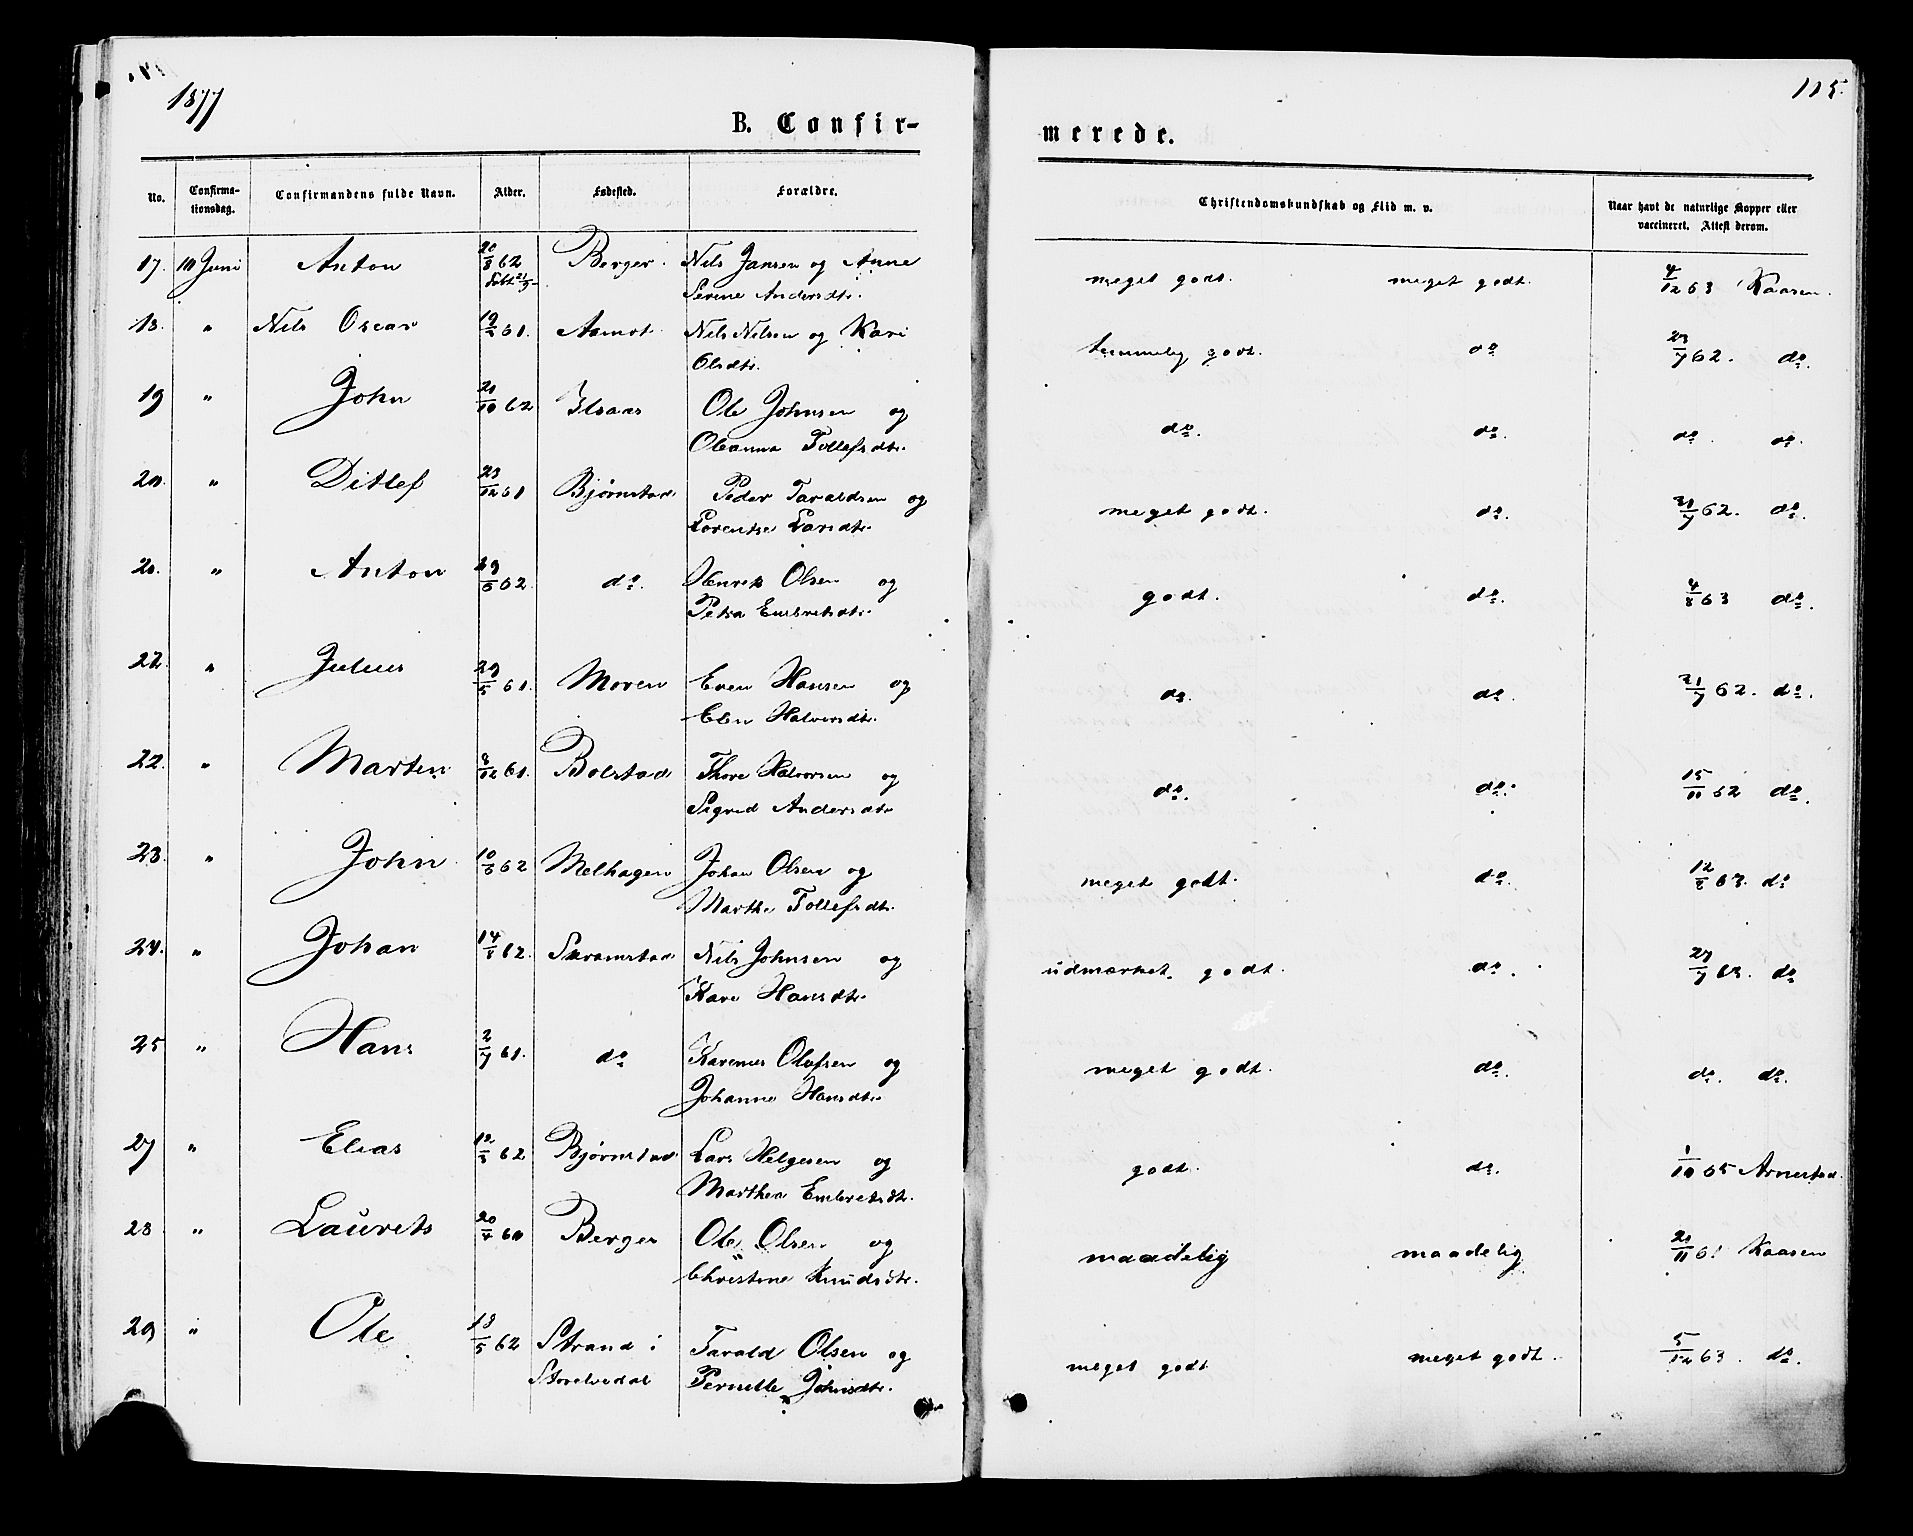 1877
115.
B. Confir-
merede.
No. Confirma-tionsdag. Confirmandens fulde Navn. Alder. Fødested. Forældre. Christendomskundskab og Flid m. v. Naar havt de naturlige Kopper eller vaccineret. Attest derom.
17. 10 Juni Anton 20/8 62 Berger. Nils Jansen og Anne meget godt. meget godt. 4/12 63 Kaasen.
Serine Andersdtr.
18. " Nils Oscar 61. Aamot. Nils Nilsen og Kari temmelig godt. do 23/7 62. do.
Olsdtr.
19 " John 21/10 62 Ilsaas Ole Johnsen og do. do. do. do.
Oleanna Tollefsdtr.
20. " Ditlef 23/12 61 Bjørnstad Peder Taraldsen og meget godt. do. 21/7 62. do.
Lorentse Larsdtr.
" Anton 62. do. Henrik Olsen og godt. do. 4/8 63 do.
Petra Embretsdtr.
22. " Julius 29/5 61. Moren Even Hansen og do. do. 21/7 62. do.
Elen Halvorsdtr.
22. " Marten 61. Bolstad Thore Halvorsen og do. do. 15/11 62 do.
Sigrid Andersdtr
23. " John 62 Melhagen Johan Olsen og meget godt. do. 12/8 63. do
Marthe Tollefsdtr.
24. " Johan 14/8 62. Skramstad Nils Johnsen og udmærket godt. do. 27/7 63. do
Kari Hansdtr.
25 " Hans 2/7 61. do Karenus Olafsen og meget godt. do. do. do.
Johanne Hansdtr.
27 " Elias 62 Bjørnstad Lars Helgesen og godt. do. 1/10 65 Arnestad.
Marthea Embretsdtr.
28 " Laurits 20/4 60 Berger Ole Olsen og maadelig maadelig 21/11 61 Kaasen
Christine Knudsdtr.
29 " Ole 13/5 62 Strand i Tarald Olsen og meget godt meget godt. 5/12 63. do.
Storelvedal Pernille Johnsdtr.